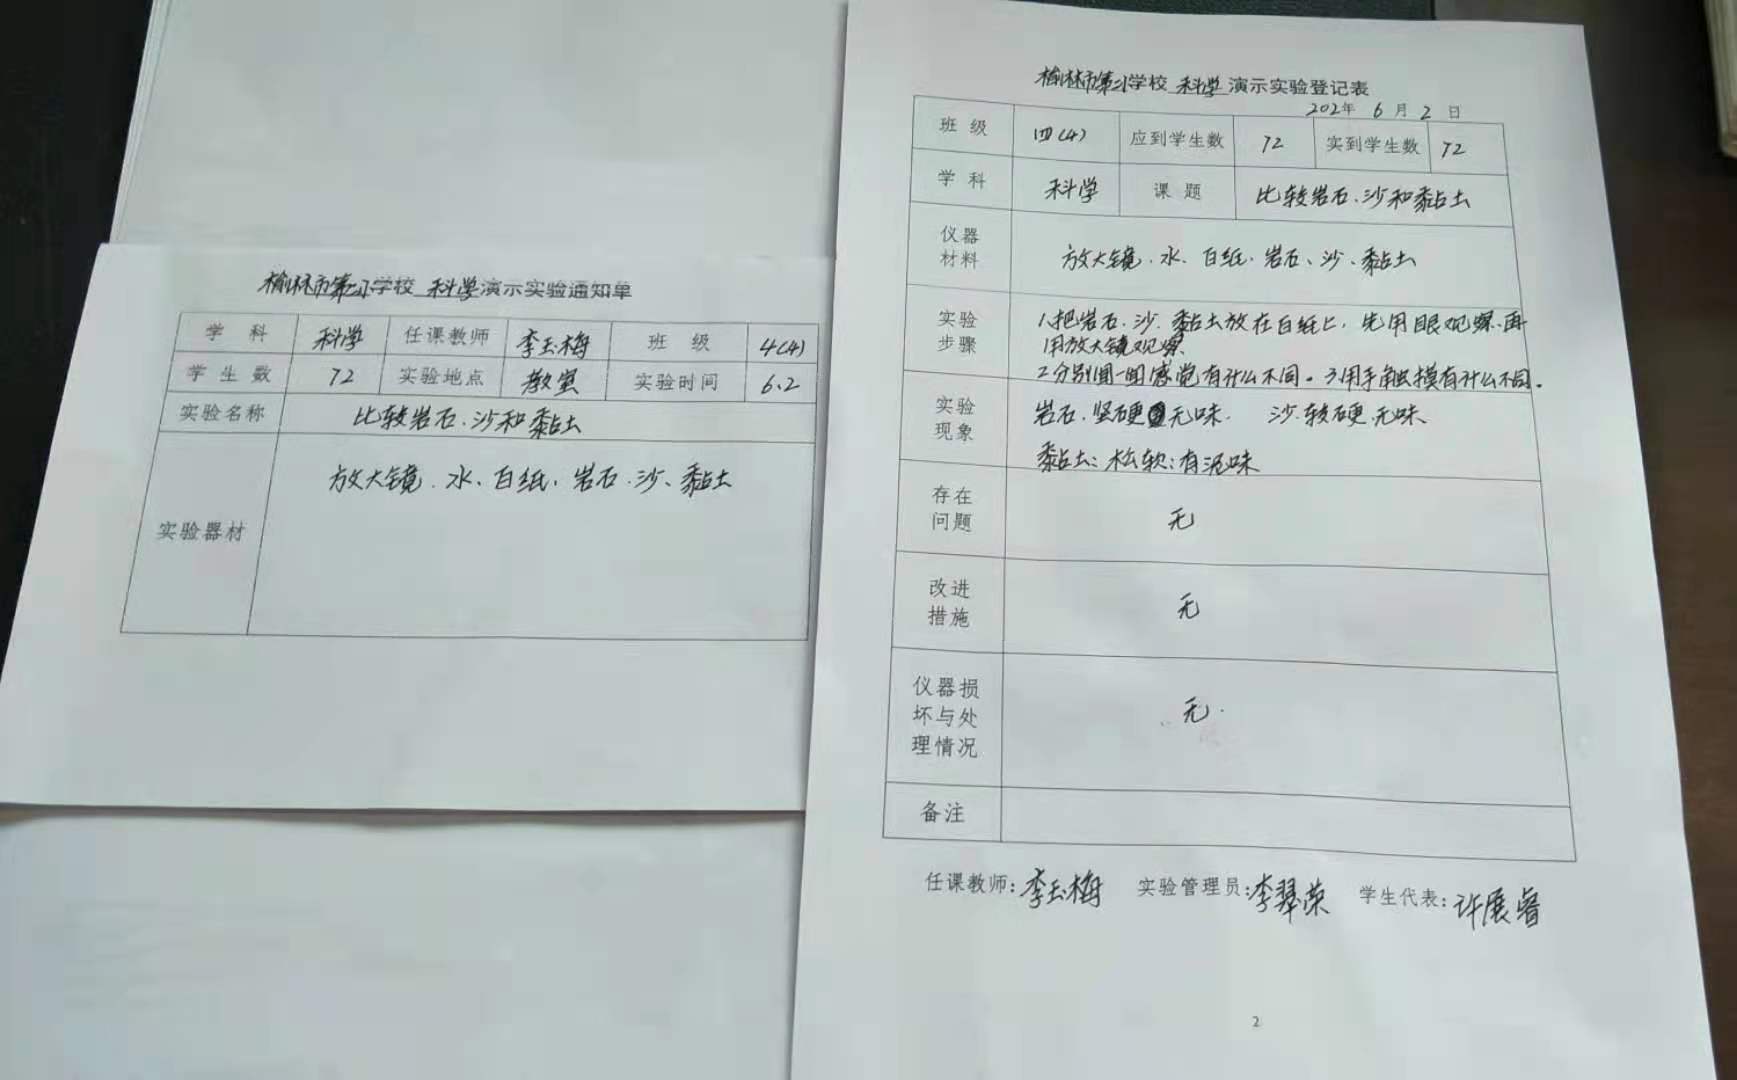 榆林市第二小学校 科学 演示实验通知单
学 科 科学 任课教师 李玉梅 班 级 4(4)
学 生 数 72 实验地点 教室 实验时间 6.2
实验名称 比较岩石、沙和黏土
实验器材 放大镜、水、白纸、岩石、沙、黏土
榆林市第二小学校 科学 演示实验登记表
202年 6 月 2 日
班 级 四(4) 应到学生数 72 实到学生数 72
学 科 科学 课 题 比较岩石、沙和黏土
仪器
材料 放大镜、水、白纸、岩石、沙、黏土
实验
步骤 1、把岩石、沙、黏土放在白纸上,先用眼观察、再
用放大镜观察
2分别闻一闻感觉有什么不同。3用手触摸有什么不同。
实验
现象 岩石、坚硬无味. 沙、较硬、无味
黏土:松软:有泥味
存在
问题 无
改进
措施 无
仪器损
坏与处
理情况 无.
备注
任课教师:李玉梅 实验管理员:李翠荣 学生代表:许展睿
2